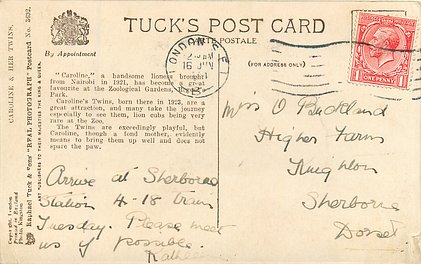 TUCK'S POST CARD
By Appointment
POSTALE
(FOR ADDRESS ONLY)
"Caroline," a handsome lioness brought
from Nairobi in 1921, has become a great
favourite at the Zoological Gardens,
Park.
Caroline's Twins, born there in 1923, are a
great attraction, and many take the journey
especially to see them, lion cubs being very
rare at the Zoo.
The Twins are exceedingly playful, but
Caroline, though a fond mother, evidently
means to bring them up well and does not
spare the paw.
Arrive at Sherborne
Station 4-18 train
Tuesday. Please meet
us if possible.
Kathleen
CAROLINE & HER TWINS.
Raphael Tuck & Sons' "REAL PHOTOGRAPH" Postcard No. 3632.
ART PUBLISHERS TO THEIR MAJESTIES THE KING & QUEEN.
Copyright, London
Printed in England
LONDON
16 JUN
ONE PENNY
Mrs O Buckland
Higher Farm
Knighton
Sherborne
Dorset